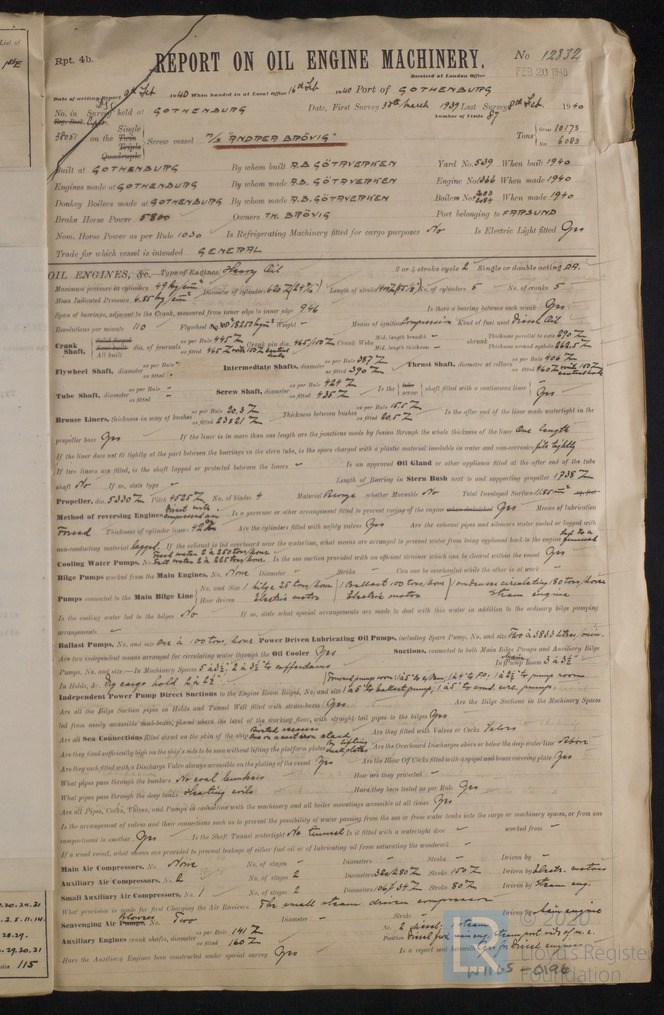 Rpt. 4b.
REPORT ON OIL ENGINE MACHINERY.
No 12332
Received at London Office
FEB 20 1940
Date of writing Report 9th Feb 1940 When handed in at Local Office 16th Feb 1940 Port of GOTHENBURG
No. in Survey held at GOTHENBURG Date, First Survey 30th March 1939 Last Survey 8th Feb 1940
Reg. Book. Number of Visits 87
38051 on the Single Twin Triple Quadruple Screw vessel M/S "ANDREA BRÖVIG" Tons Gross 10173 Net 6083
Built at GOTHENBURG By whom built A.B. GÖTAVERKEN Yard No. 539 When built 1940
Engines made at GOTHENBURG By whom made A.B. GÖTAVERKEN Engine No. 1066 When made 1940
Donkey Boilers made at GOTHENBURG By whom made A.B. GÖTAVERKEN Boiler No. 2083 2084 When made 1940
Brake Horse Power 5800 Owners TH. BRÖVIG Port belonging to FARSUND
Nom. Horse Power as per Rule 1030 Is Refrigerating Machinery fitted for cargo purposes No Is Electric Light fitted Yes
Trade for which vessel is intended GENERAL
OIL ENGINES, &c. Type of Engines Heavy Oil 2 or 4 stroke cycle 2 Single or double acting
Maximum pressure in cylinders 49 kg/cm² Diameter of cylinders Length of stroke No. of cylinders No. of cranks 5
Mean Indicated Pressure 6.85 kg/cm²
Span of bearings, adjacent to the Crank, measured from inner edge to inner edge 946 Is there a bearing between each crank Yes
Revolutions per minute 110 Flywheel Weight - Means of ignition Compression Kind of fuel used Diesel Oil
Crank Shaft, Solid forged Semi built All built dia. of journals as per Rule 445 as fitted 465 Crank pin dia. 465/150 Crank Webs Mid. length breadth - Mid. length thickness - shrunk Thickness parallel to axis 290 Thickness around eyehole 262.5
Flywheel Shaft, diameter as per Rule - as fitted - Intermediate Shafts, diameter as per Rule 387 as fitted 390 Thrust Shaft, diameter at collars as per Rule 406 as fitted 460
Tube Shaft, diameter as per Rule - as fitted - Screw Shaft, diameter as per Rule 424 as fitted 435 Is the tube screw shaft fitted with a continuous liner Yes
Bronze Liners, thickness in way of bushes as per Rule 20.3 as fitted 23 & 21 Thickness between bushes as per Rule 15.5 as fitted 20.5 Is the after end of the liner made watertight in the
propeller boss Yes If the liner is in more than one length are the junctions made by fusion through the whole thickness of the liner One length
If the liner does not fit tightly at the part between the bearings in the stern tube, is the space charged with a plastic material insoluble in water and non-corrosive fits tightly
If two liners are fitted, is the shaft lapped or protected between the liners - Is an approved Oil Gland or other appliance fitted at the after end of the tube
shaft No If so, state type - Length of Bearing in Stern Bush next to and supporting propeller 1738
Propeller, dia. 5330 Pitch 4525 No. of blades 4 Material Bronze whether Moveable No Total Developed Surface
Method of reversing Engines Direct with compressed air Is a governor or other arrangement fitted to prevent racing of the engine when declutched Yes Means of lubrication
Forced Thickness of cylinder liners Are the cylinders fitted with safety valves Yes Are the exhaust pipes and silencers water cooled or lagged with
non-conducting material lagged If the exhaust is led overboard near the waterline, what means are arranged to prevent water from being syphoned back to the engine led to a funnel
Cooling Water Pumps, No. Fresh water 2 à 250 tons/hour. Salt water 2 à 225 tons/hour. Is the sea suction provided with an efficient strainer which can be cleared within the vessel Yes
Bilge Pumps worked from the Main Engines, No. None Diameter - Stroke - Can one be overhauled while the other is at work -
Pumps connected to the Main Bilge Line No. and Size 1 bilge 25 tons/hour 1 Ballast 100 tons/hour 1 condenser circulating 180 tons/hour
How driven Electric motor Electric motor Steam engine
Is the cooling water led to the bilges No If so, state what special arrangements are made to deal with this water in addition to the ordinary bilge pumping
arrangements -
Ballast Pumps, No. and size One à 100 tons/hour Power Driven Lubricating Oil Pumps, including Spare Pump, No. and size Two à 3833 litres/min.
Are two independent means arranged for circulating water through the Oil Cooler Yes Suctions, connected to both Main Bilge Pumps and Auxiliary Bilge
Pumps, No. and size:—In Machinery Spaces In Pump Room 3 à 3½"
In Holds, &c. Dry cargo hold 2 à 2½"
Independent Power Pump Direct Suctions to the Engine Room Bilges, No. and size 1 à 5" to ballast pump, 1 à 5" to cond. circ. pump.
Are all the Bilge Suction pipes in Holds and Tunnel Well fitted with strum-boxes Yes Are the Bilge Suctions in the Machinery Spaces
led from easily accessible mud-boxes, placed above the level of the working floor, with straight tail pipes to the bilges Yes
Are all Sea Connections fitted direct on the skin of the ship Are they fitted with Valves or Cocks Valves
Are they fixed sufficiently high on the ship's side to be seen without lifting the platform plates By lifting deck plates Are the Overboard Discharges above or below the deep water line Above
Are they each fitted with a Discharge Valve always accessible on the plating of the vessel Yes Are the Blow Off Cocks fitted with a spigot and brass covering plate Yes
What pipes pass through the bunkers No coal bunkers How are they protected -
What pipes pass through the deep tanks Heating coils Have they been tested as per Rule Yes
Are all Pipes, Cocks, Valves, and Pumps in connection with the machinery and all boiler mountings accessible at all times Yes
Is the arrangement of valves and their connections such as to prevent the possibility of water passing from the sea or from water tanks into the cargo or machinery spaces, or from one
compartment to another Yes Is the Shaft Tunnel watertight No tunnel Is it fitted with a watertight door - worked from -
If a wood vessel, what means are provided to prevent leakage of either fuel oil or of lubricating oil from saturating the woodwork -
Main Air Compressors, No. None No. of stages - Diameters - Stroke - Driven by -
Auxiliary Air Compressors, No. 2 No. of stages 2 Diameters 320/280 Stroke 150 Driven by Electr. motors
Small Auxiliary Air Compressors, No. 1 No. of stages 2 Diameters Stroke 80 Driven by Steam eng.
What provision is made for first Charging the Air Receivers The small steam driven compressor
Scavenging Air Pumps, Blowers No. Two Diameter - Stroke - Driven by Main engine
Auxiliary Engines crank shafts, diameter as per Rule 141 as fitted 160 No. 2 diesel, 1 steam Position
Have the Auxiliary Engines been constructed under special survey Yes Is a report sent herewith Yes for Diesel engines
© 2020
LR Lloyd's Register Foundation
W1165-0196
115